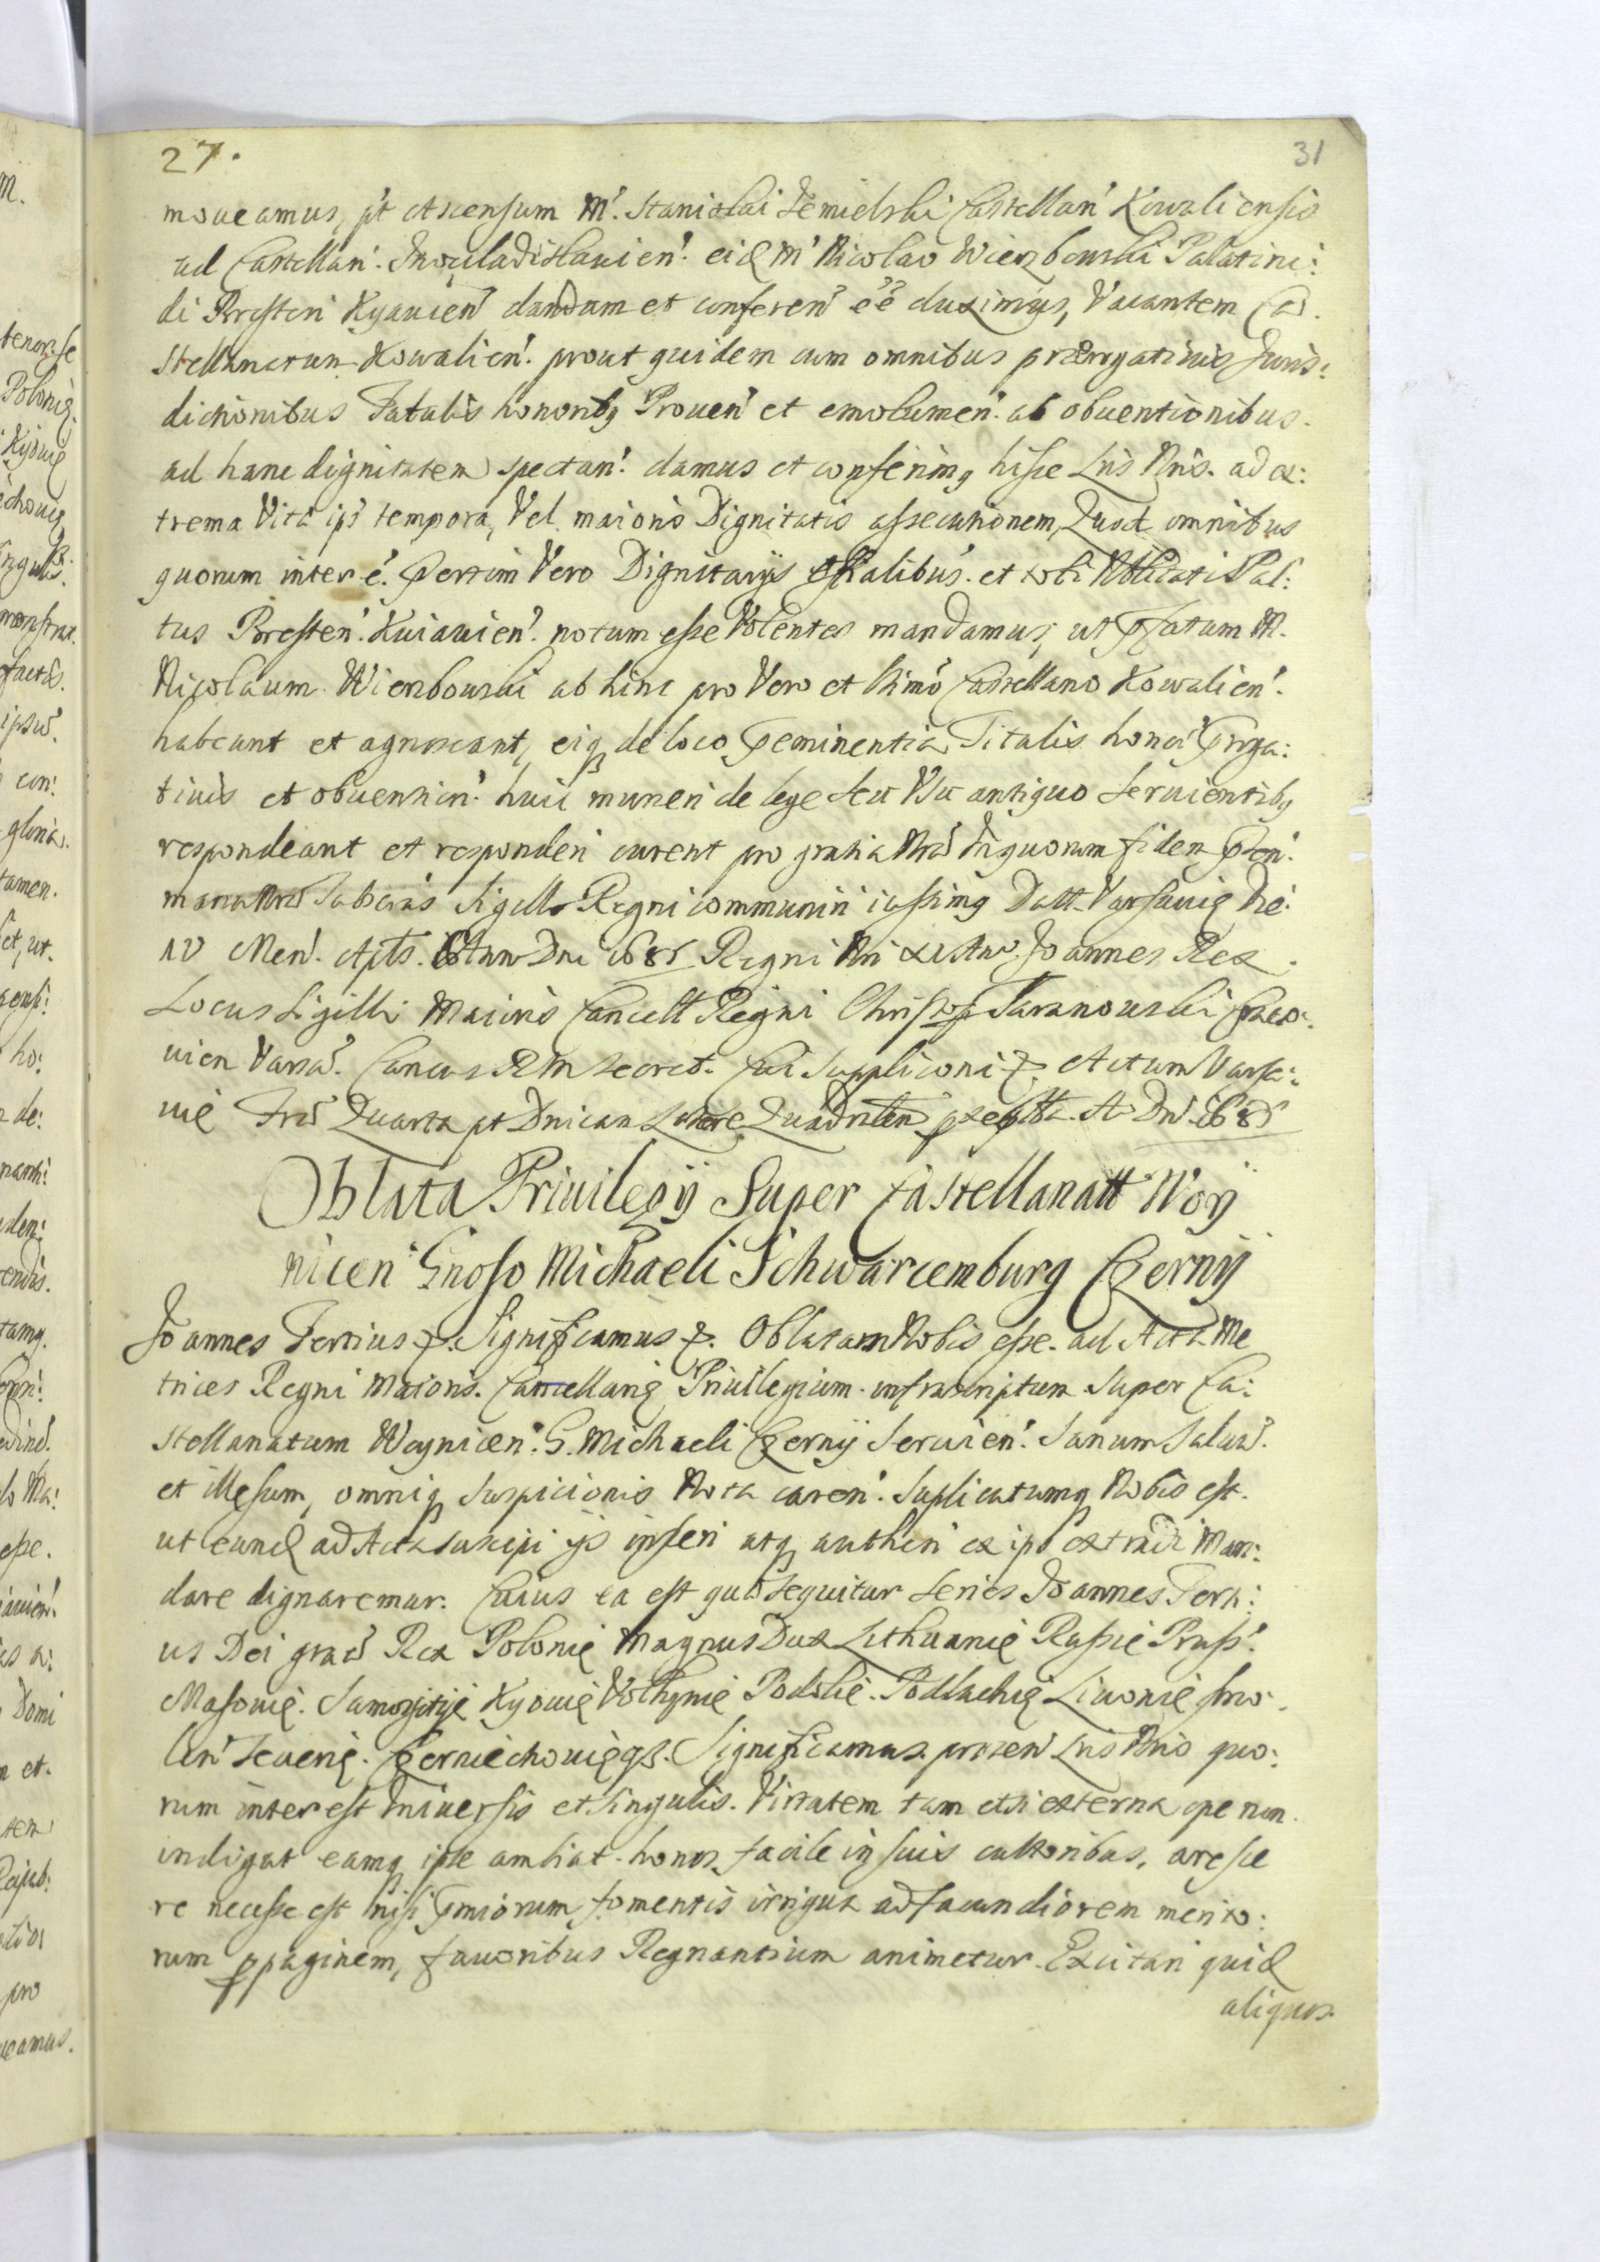 27.
31
moveamus, pt Ascensum M. Stanislai Semielski Castellan Kowaliensis
ad Castellan. Inowladislavien. eid M Nicolao Wierzbowski Palatini:
di Bresten Kyavien dandam et conferen éé duximus, Vacantem Ca
stellanatum Kowalien. prout quidem cum omnibus prærogativis Juris:
dictionibus Titulis honoribq Proven et emolumen. ab obventionibus
ad hanc dignitatem spectan. damus et conferimq hisce Lris Nris. ad ex:
trema Vitæ ips tempora, Vel maioris Dignitatis assecutionem, Quod omnibus
quorum inter é. Pertim Vero Dignitarys Offialibus. et toti Nobilitati Pal:
tus Bresten. Kuiavien. notum esse Volentes mandamus, ut Pfatum M.
Nicolaum Wierzbowski ab hinc pro Vero et Ltimo Castellano Kowalien.
habeant et agnoscant, eiq de loco Peminentia Titulis honor Proga:
tivis et obvention. huic muneri de lege seu Usu antiquo servientibq
respondeant et responderi curent pro gratia Nra In quorum fidem Psen.
manu Nra Subscris Sigillo Regni communiri iussimq Datt Varsaviæ Die
IV Men. Aplis. Anno Dni 1685 Regni Nri XI Ano Joannes Rex.
Locus Sigilli Maioris Cancell Regni Christoph Taranowski Craco:
vien Varsa. Cancus RM Secret. Cui Suppliconi & Actum Varsa:
viæ Fria Quarta pt Dnicam Lætare Quadrilen pxe A Dni 1685
Oblata Privilegij Super Castellanatt Woy
nicen Gnoso Michaeli Schwarcemburg Czerny
Joannes Tertius &. Significamus &. Oblatam Nobis esse ad Acta Me
trices Regni Maioris. Cancellariæ Privilegium infrascriptum Super Ca:
stellanatum Woynicen. G. Michaeli Czerny Servien. Sanum Salvu.
et illesum, omniq Suspicionis Nota caren. Suplicatumq Nobis est.
ut eund ad Acta suscipi ijs inseri atq authen ex ips extradi Man:
dare dignaremur. Cuius ea est quæ sequitur Series Joannes Terti:
us Dei gra Rex Poloniæ Magnus Dux Lithuaniæ Russiæ Pruss.
Masoviæ. Samogitiæ Kyoviæ Volhyniæ Podoliæ. Podlachiæ Livoniæ Smo.
len Severiæ. Czerniechoviæqz. Significamus præsen Lris Nris quo:
rum interest Universis et Singulis. Virtutem tam etsi externa ope non
indigat eamq ipse ambiat honor, facile in suis cultoribus, aresce
re necesse est nisi Pmiorum fomentis irrigua ad facundiorem merito:
rum ppaginem, favoribus Regnantium animetur. Excitari quid
aliquos